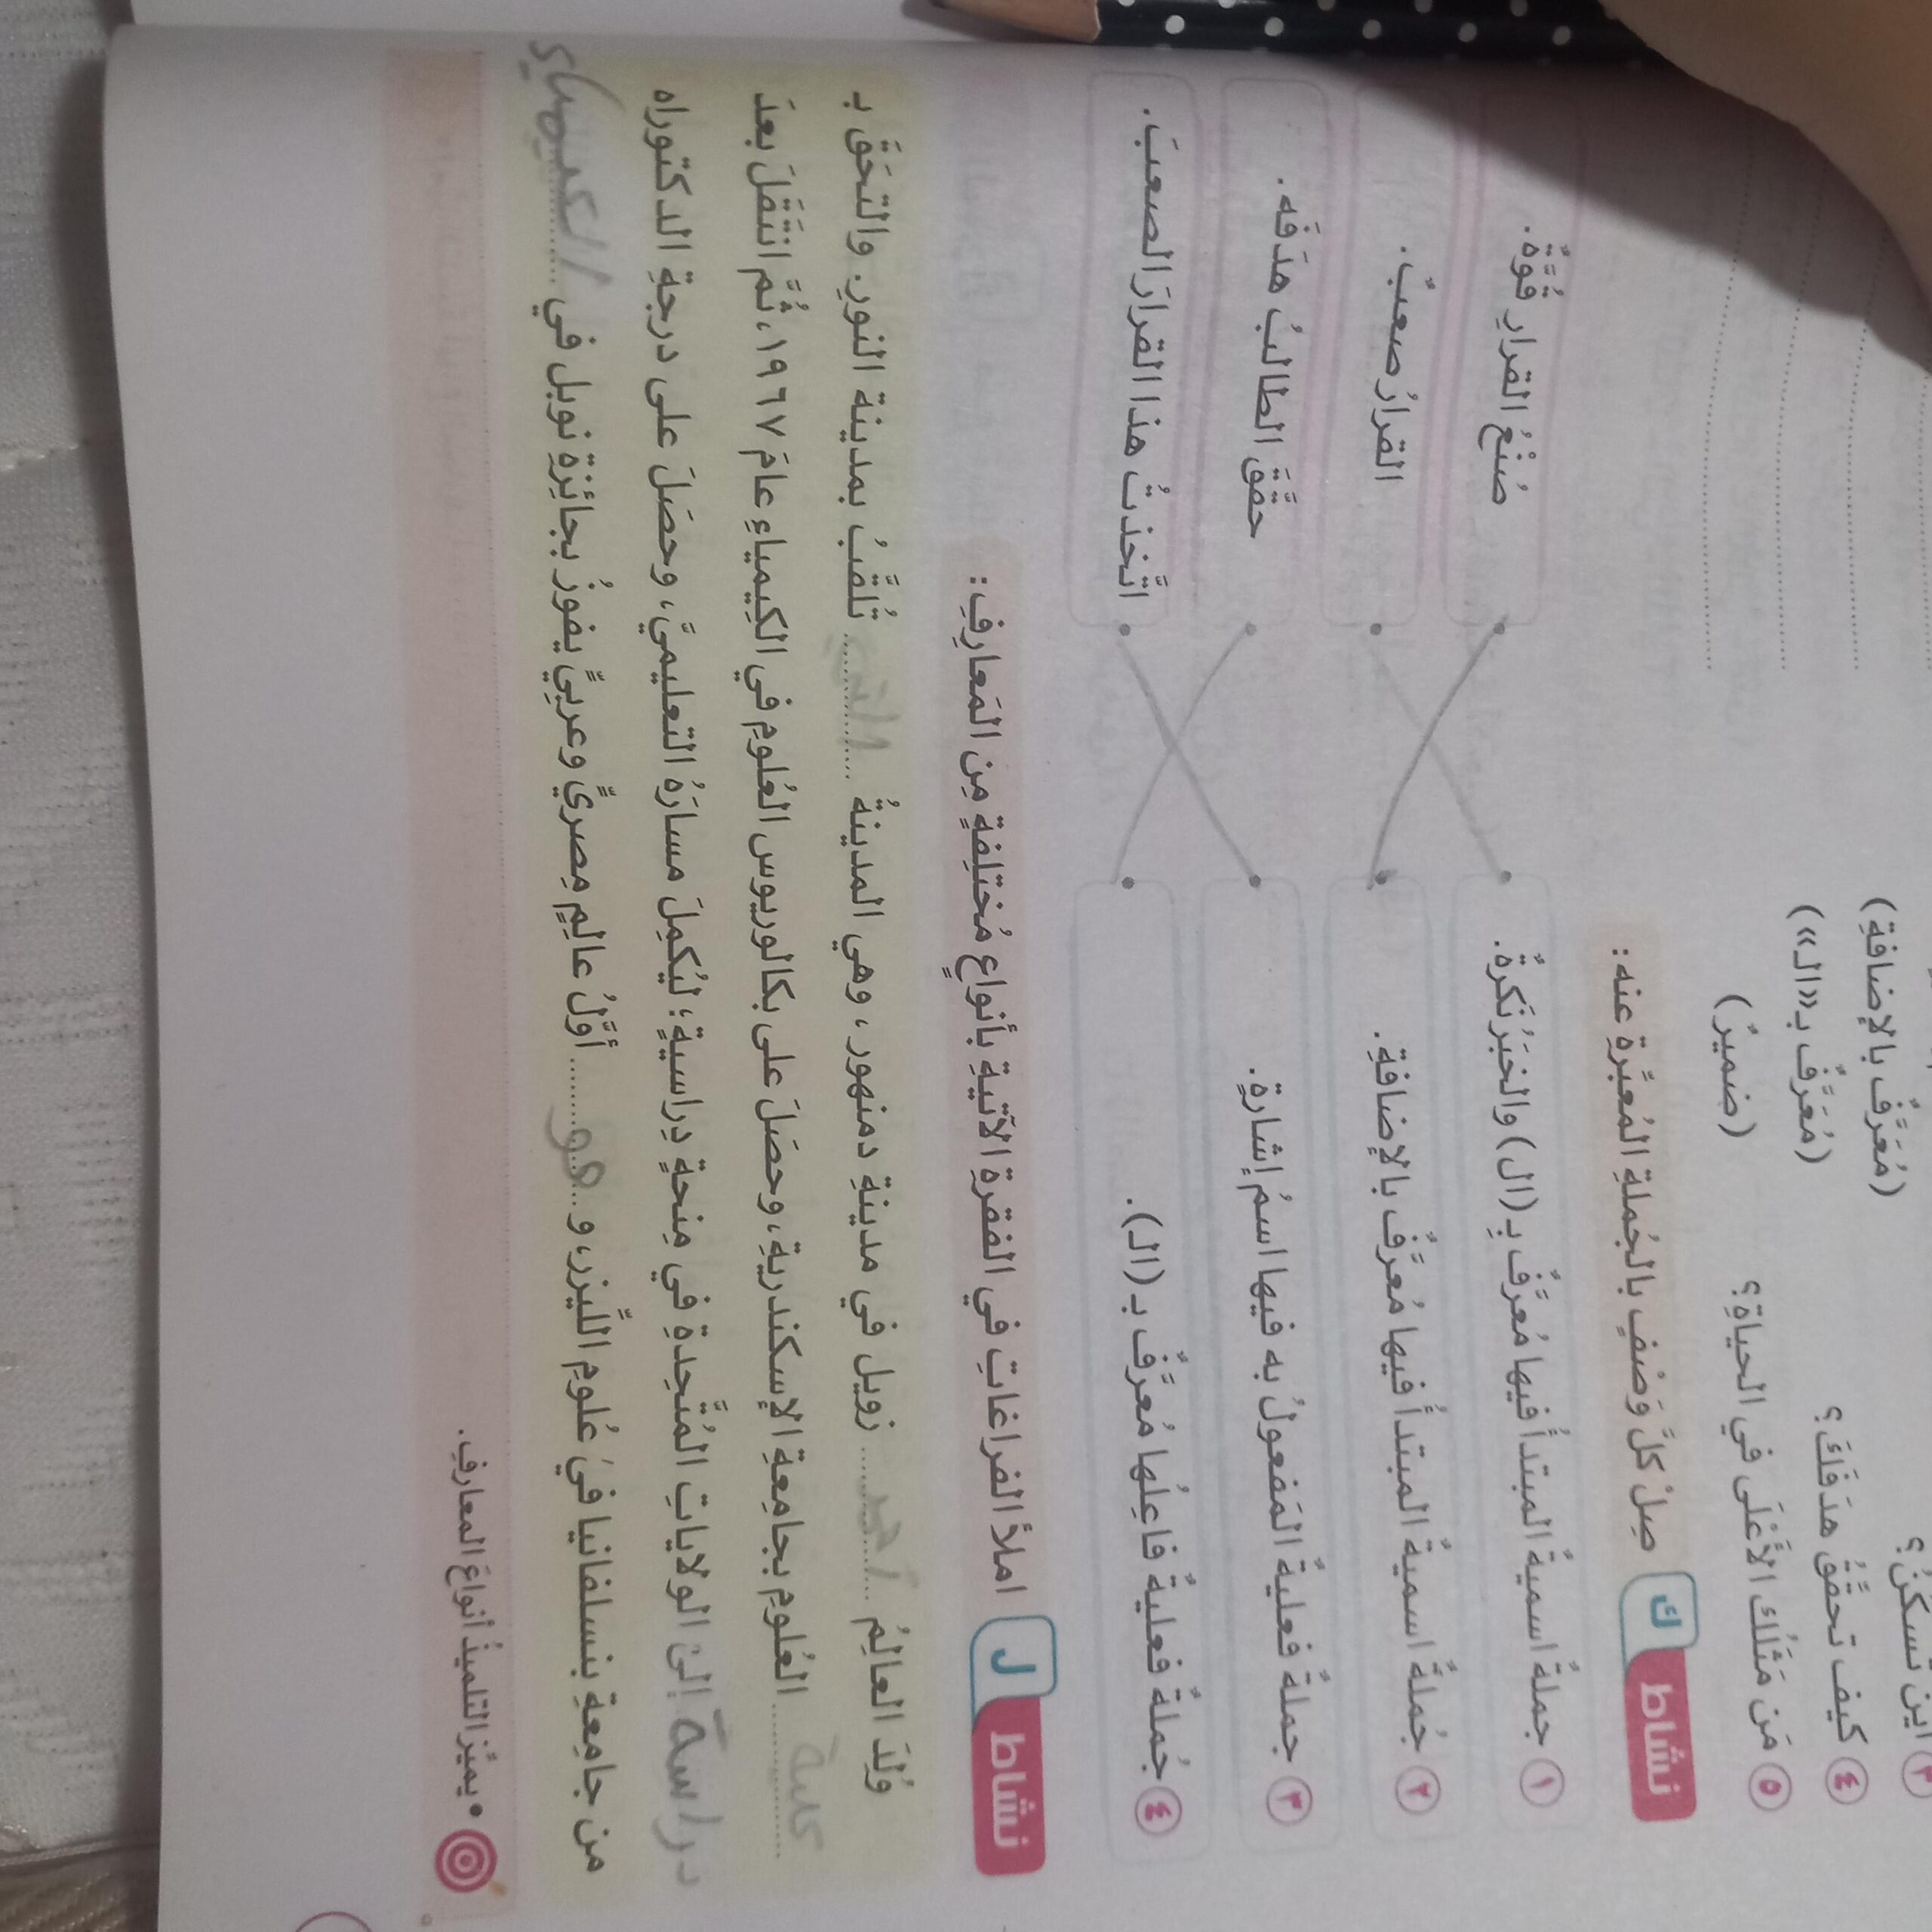 أين تسكن؟
(مُعَرَّفٌ بالإضافةِ)
٤ كيف تحقِّقُ هدفَكَ؟ (مُعَرَّفٌ بـ «الـ»)
٥ مَن مَثَلُك الأَعْلَى في الحياةِ؟ (ضميرٌ)
نشاط ك صِلْ كلَّ وَصْفٍ بالجُملةِ المُعبِّرةِ عنه:
١ جملةٌ اسميةٌ المبتدأُ فيها مُعرَّفٌ بـِ (ال) والخبَرُ نَكرةٌ. صُنْعُ القرارِ قُوَّةٌ.
٢ جُملةٌ اسميةٌ المبتدأُ فيها مُعرَّفٌ بالإضافةِ. القرارُ صعبٌ.
٣ جملةٌ فعليةٌ المَفعولُ به فيها اسمُ إشارةٍ. حقَّقَ الطالبُ هدَفَه.
٤ جُملةٌ فعليةٌ فاعِلُها مُعرَّفٌ بـ (الـ). اتَّخذتُ هذا القرارَ الصعبَ.
نشاط ل املأ الفراغاتِ في الفقرةِ الآتيةِ بأنواعٍ مُختلِفةٍ مِن المَعارِفِ:
وُلِدَ العالِمُ أحمد زويل في مدينةِ دمنهور، وهي المدينةُ التي تُلقَّبُ بمدينة النورِ. والتحَقَ بـ
كلية العُلومِ بجامِعةِ الإسكندريةِ، وحصَلَ على بكالوريوس العُلومِ في الكيمياءِ عامَ ١٩٦٧، ثُمَّ انتَقلَ بعدَ
دراسة إلى الولاياتِ المُتَّحِدةِ في مِنحةٍ دِراسيةٍ؛ ليُكمِلَ مسارَهُ التعليميَّ، وحصَلَ على درجةِ الدكتوراه
من جامِعةِ بنسلفانيا في عُلومِ اللَّيزر، و هو أوَّلُ عالِمٍ مِصريٍّ وعربيٍّ يفوزُ بجائِزةِ نوبل في الكيمياء
• يميِّز التلميذُ أنواعَ المعارفِ.